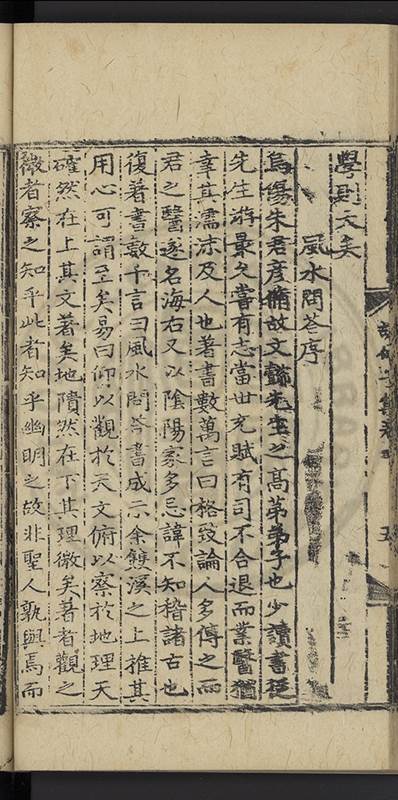 學則大矣
風水問荅序
烏傷朱君彥脩故文懿先生之髙第弟子也少讀書從
先生游最久嘗有志當世充賦有司不合退而業醫猶
幸其濡沫及人也著書數萬言曰格致論人多傳之而
君之醫遂名海右又以隂陽家多忌諱不知稽諸古也
復著書數千言曰風水問荅書成示余雙溪之上推其
用心可謂至矣易曰仰以觀於天文俯以察於地理天
確然在上其文著矣地隤然在下其理微矣著者觀之
微者察之知乎此者知乎幽明之故非聖人孰與焉而